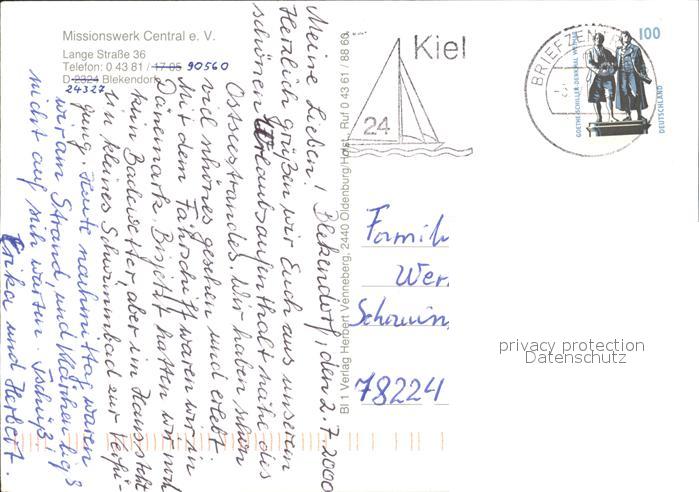 Missionswerk Central e. V.
Lange Straße 36
Telefon: 0 43 81 / 17 05 90560
D-2324 Blekendorf
24327
Meine Lieben! Blekendorf, den 2.7.2000
Herzlich grüßen wir Euch aus unserem
schönen Urlaubsaufenthalt nahe des
Ostseestrandes. Wir haben schon
viel schönes gesehen und erlebt.
Mit dem Fährschiff waren wir in
Dänemark. Bis jetzt hatten wir noch
kein Badewetter, aber im Haus steht
ein kleines Schwimmbad zur Verfü-
gung. Heute nachmittag waren
wir am Strand, und Klärchen ließ
nicht auf sich warten. Tschüß!
Erika und Herbert.
BI 1 Verlag Herbert Venneberg, 2440 Oldenburg/Holst., Ruf 0 43 61 / 88 60
Kiel
24
BRIEFZEN
GOETHE-SCHILLER-DENKMAL WEIMAR
100
DEUTSCHLAND
Famili
Wer
78224
privacy protection
Datenschutz